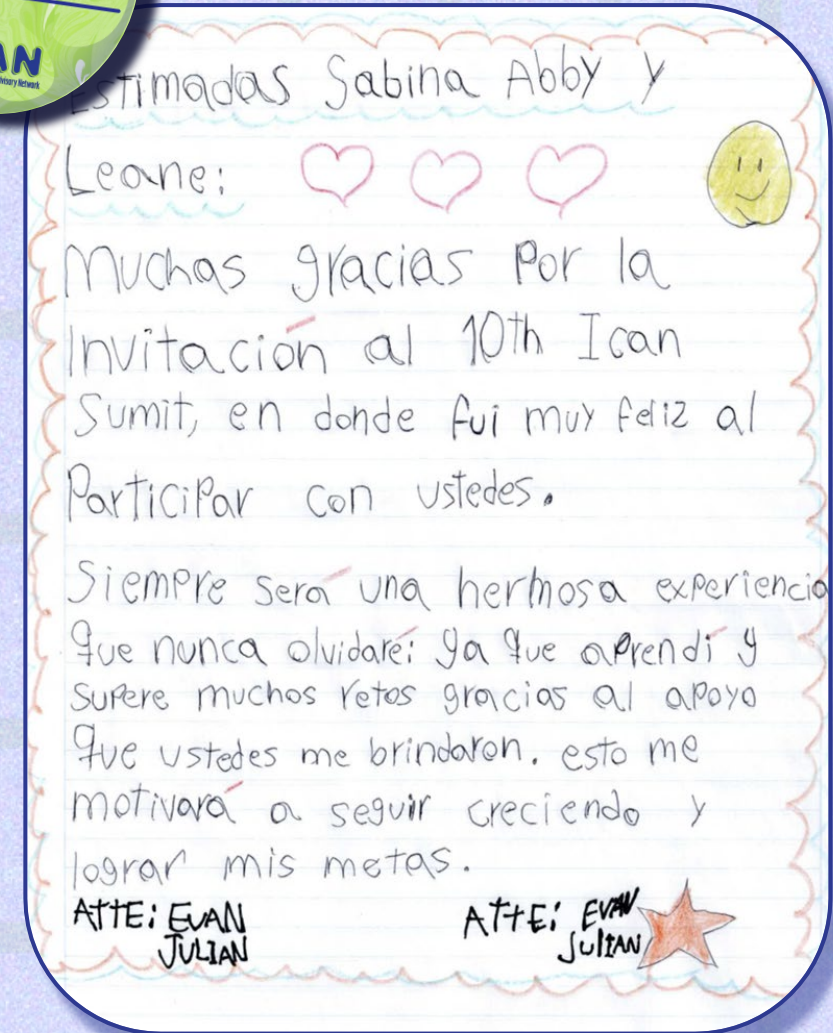 AN
visory Network
Estimadas Sabina Abby y
Leane:
Muchas gracias por la
Invitación al 10th Ican
Sumit, en donde fui muy feliz al
Participar con ustedes.
Siempre será una hermosa experiencia
que nunca olvidaré; ya que aprendí y
supere muchos retos gracias al apoyo
que ustedes me brindaron. esto me
motivará a seguir creciendo y
lograr mis metas.
ATTE: EVAN
JULIAN
ATTE: EVAN
JULIAN